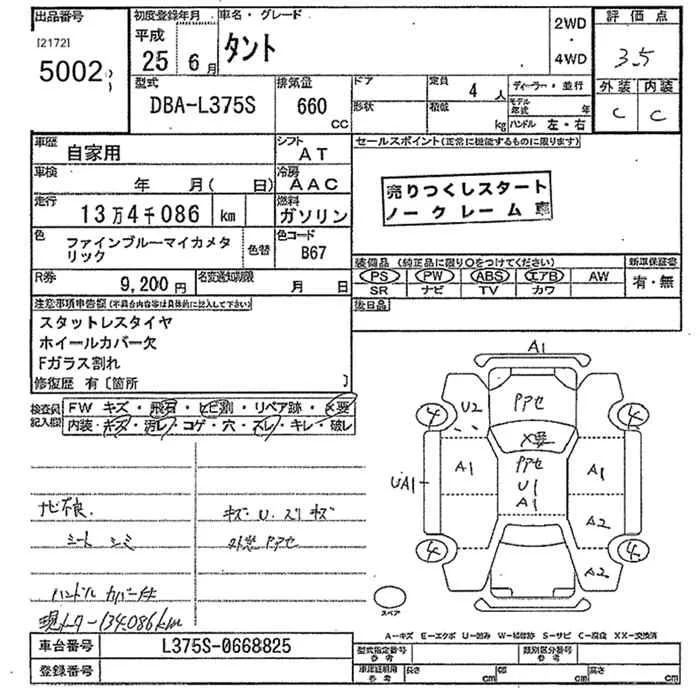 出品番号
[2172]
5002
初度登録年月
平成
25 6月
車名・グレード
タント
2WD
・
4WD
評価点
3.5
外装 内装
C C
型式
DBA-L375S
排気量
660
CC
ドア
形状
定員 4 人
積載 kg
ディーラー・並行
モデル年式 年
ハンドル 左・右
車歴 自家用
シフト AT
車検 年 月( 日)
冷房 AAC
走行 13万4千086 km
燃料 ガソリン
色 ファインブルーマイカメタリック
色替
色コード B67
R券 9,200円
名変通知期限 月 日
セールスポイント(正常に機能するものに限ります)
売りつくしスタート
ノークレーム車
装備品 (純正品に限り○をつけてください)
新車保証書
PS PW ABS エアB AW
SR ナビ TV カワ
有・無
後日品
注意事項申告欄(不具合内容等は具体的に記入して下さい)
スタットレスタイヤ
ホイールカバー欠
Fガラス割れ
修復歴 有〔箇所 〕
検査員記入欄
FW キズ・飛石・ヒビ割・リペア跡・X要
内装・キズ・汚レ・コゲ・穴・スレ・キレ・破レ
ナビ不良
シート シミ
ハンドル カバー付
現メーター134,086km
キズ U. スリキズ
外装 Pアセ
A1
4
U2
Pアセ
4
X要
A1
Pアセ
U1
A1
A1
UA1
A2
4
A2
4
スペア
A-キズ E-エクボ U-凹み W-補修跡 S-サビ C-腐食 XX-交換済
車台番号 L375S-0668825
登録番号
型式指定番号
参考
類別区分番号
参考
車庫証明用
参考
長さ cm
幅 cm
高さ cm